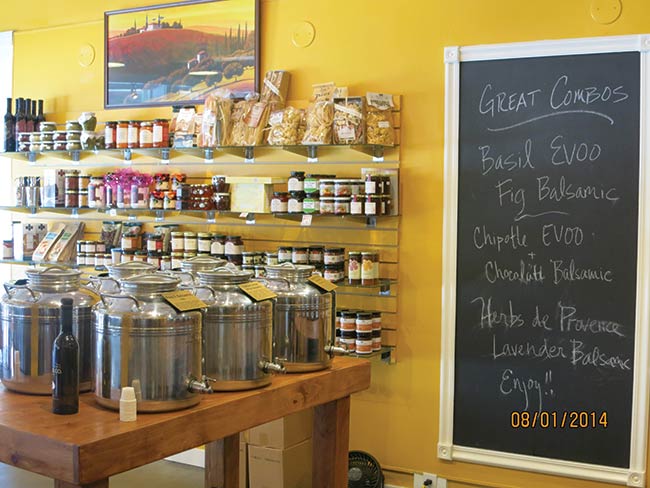 GREAT COMBOS
Basil EVOO
Fig Balsamic
Chipotle EVOO
+
Chocolatt Balsamic
Herbs de Provence
Lavender Balsamic
Enjoy!!
08/01/2014